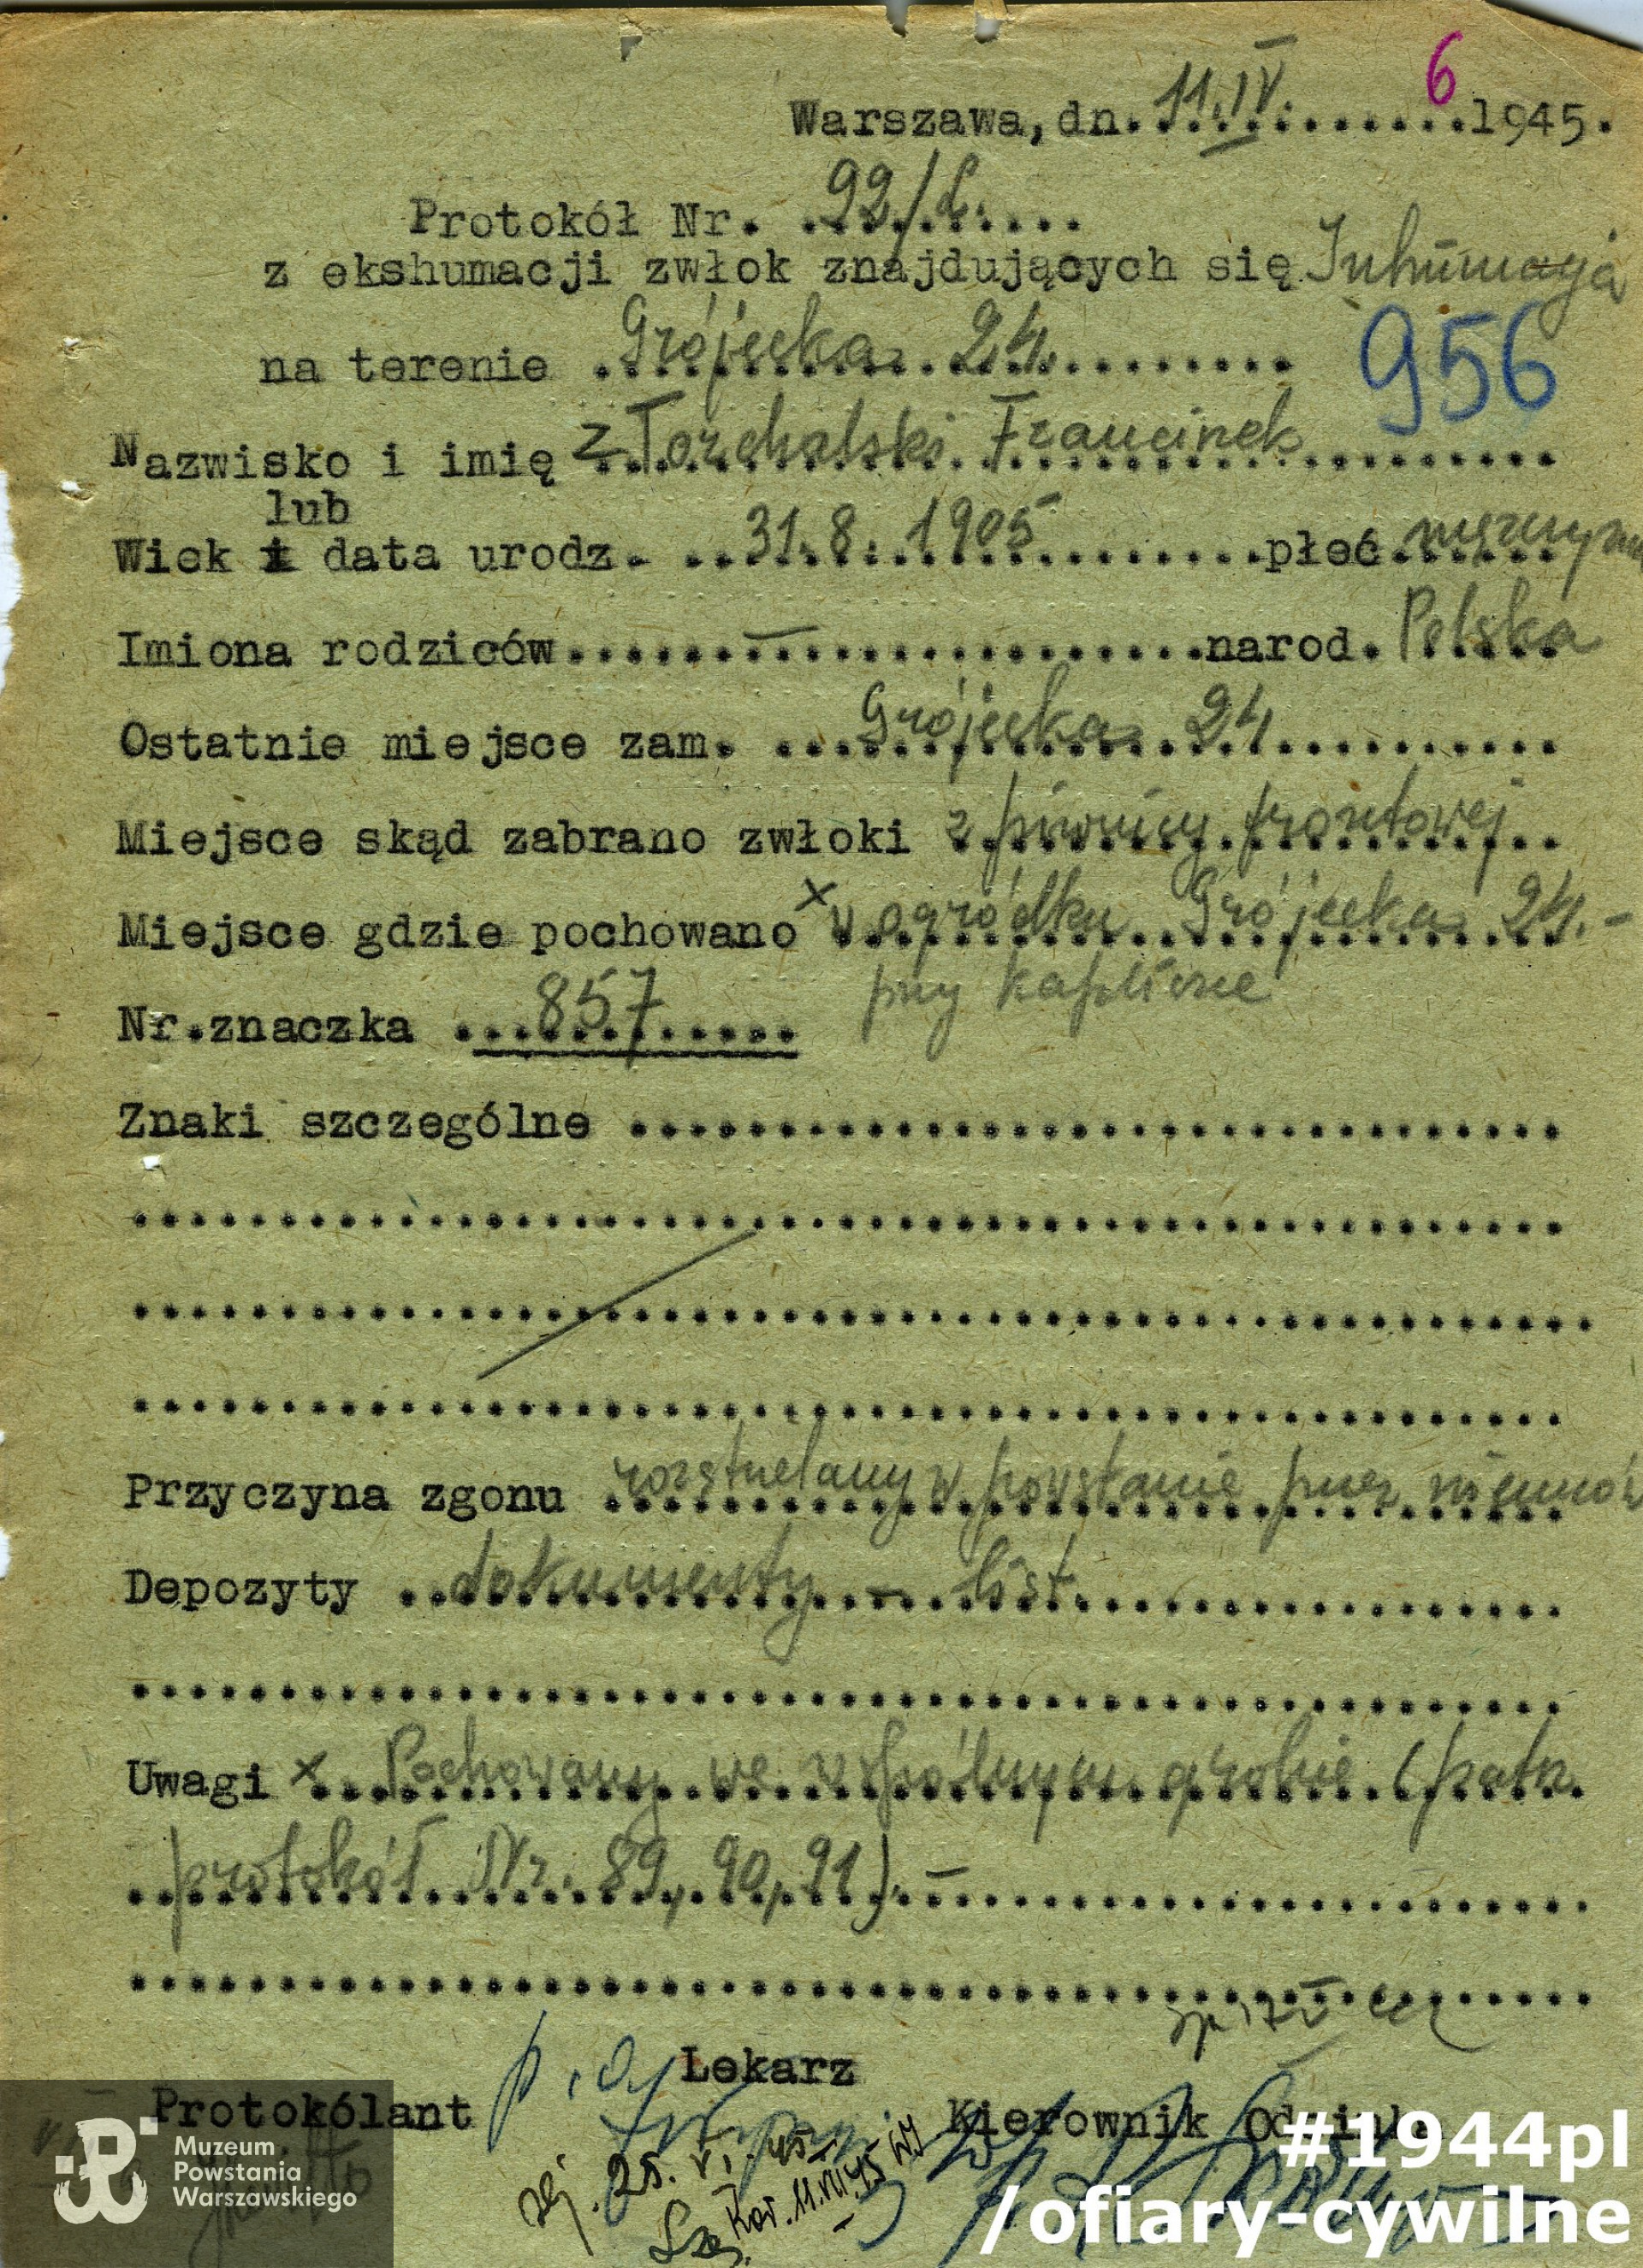 6
Warszawa, dn. 11.IV. 1945.
Protokół Nr. 92/L.
z ekshumacji zwłok znajdujących się Inhumacja
na terenie Grójecka 24.
956
Nazwisko i imię z Torchalski Franciszek
lub
Wiek i data urodz. 31.8.1905 płeć mężczyzna
Imiona rodziców — narod. Polska
Ostatnie miejsce zam. Grójecka 24
Miejsce skąd zabrano zwłoki z piwnicy frontowej
Miejsce gdzie pochowano x w ogródku Grójecka 24.-
przy kapliczce
Nr.znaczka 857
Znaki szczególne
Przyczyna zgonu rozstrzelany w powstanie przez niemców
Depozyty dokumenty - list.
Uwagi x Pochowany we wspólnym grobie (patrz
protokół Nr. 89, 90, 91).-
Lekarz
Protokólant
Kierownik Oddziału
zej. 25.VI.45
Kor. 11.VII.45
Muzeum
Powstania
Warszawskiego
#1944pl
/ofiary-cywilne